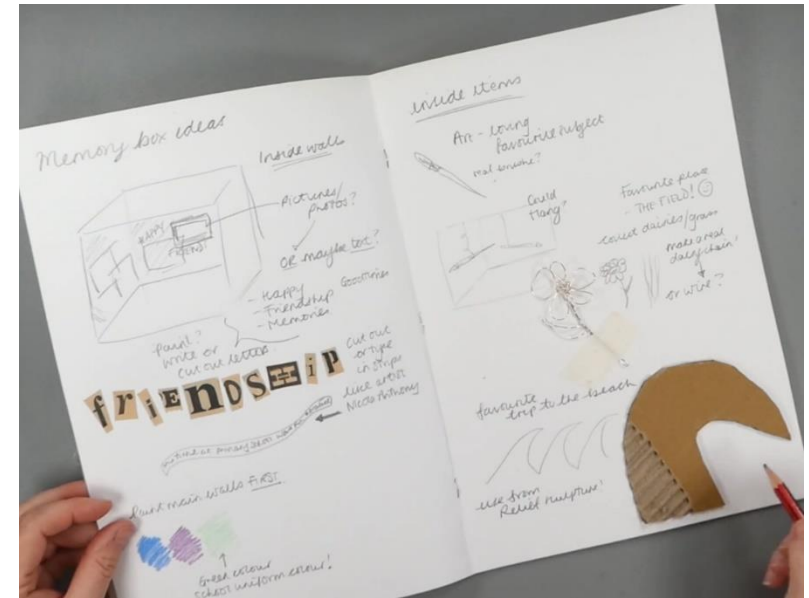 Memory box ideas
Inside walls
Pictures/
Photos?
HAPPY
FRIEND!
OR maybe text?
- Happy
Good times
- Friendship
- Memories
Paint?
write or
cut out letters.
friENDSHip
cut out
or type
in strips
like artist
Nicole Anthony
our time at primary school
Paint main walls FIRST
Green colour
School uniform colour!
inside items
Art - loving
favourite subject
make one?
Could
Hang?
Favourite place
- THE FIELD!
collect daisies/grass
make a real
daisychain?
or wire?
favourite
trip to the beach
use from
Relief sculpture!